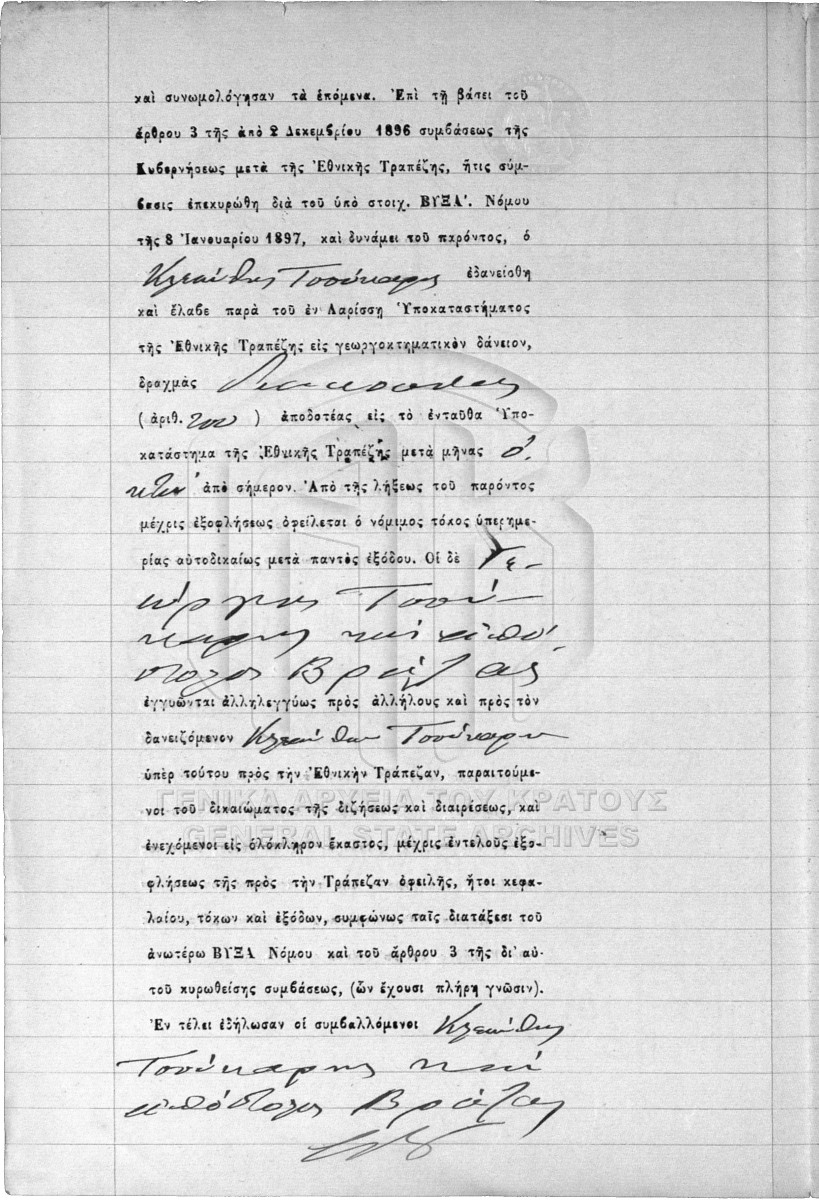 καὶ συνωμολόγησαν τὰ ἑπόμενα. Ἐπὶ τῇ βάσει τοῦ
ἄρθρου 3 τῆς ἀπὸ 2 Δεκεμβρίου 1896 συμβάσεως τῆς
Κυβερνήσεως μετὰ τῆς Ἐθνικῆς Τραπέζης, ἥτις σύμ-
βασις ἐπεκυρώθη διὰ τοῦ ὑπὸ στοιχ. ΒΥΞΑ'. Νόμου
τῆς 8 Ἰανουαρίου 1897, καὶ δυνάμει τοῦ παρόντος, ὁ
Κλεάνθης Τσούκαρης ἐδανείσθη
καὶ ἔλαβε παρὰ τοῦ ἐν Λαρίσσῃ Ὑποκαταστήματος
τῆς Ἐθνικῆς Τραπέζης εἰς γεωργοκτηματικὸν δάνειον,
δραχμὰς Διακοσίας
(ἀριθ. 200) ἀποδοτέας εἰς τὸ ἐνταῦθα Ὑπο-
κατάστημα τῆς Ἐθνικῆς Τραπέζης μετὰ μῆνας ὀ-
κτὼ ἀπὸ σήμερον. Ἀπὸ τῆς λήξεως τοῦ παρόντος
μέχρις ἐξοφλήσεως ὀφείλεται ὁ νόμιμος τόκος ὑπερημε-
ρίας αὐτοδικαίως μετὰ παντὸς ἐξόδου. Οἱ δὲ Γε-
ώργιος Τσού-
καρης καὶ Ἀπό-
στολος Βράζας
ἐγγυῶνται ἀλληλεγγύως πρὸς ἀλλήλους καὶ πρὸς τὸν
δανειζόμενον Κλεάνθην Τσούκαρην
ὑπὲρ τούτου πρὸς τὴν Ἐθνικὴν Τράπεζαν, παραιτούμε-
νοι τοῦ δικαιώματος τῆς διζήσεως καὶ διαιρέσεως, καὶ
ΓΕΝΙΚΑ ΑΡΧΕΙΑ ΤΟΥ ΚΡΑΤΟΥΣ
GENERAL STATE ARCHIVES
ἐνεχόμενοι εἰς ὁλόκληρον ἕκαστος, μέχρις ἐντελοῦς ἐξο-
φλήσεως τῆς πρὸς τὴν Τράπεζαν ὀφειλῆς, ἤτοι κεφα-
λαίου, τόκων καὶ ἐξόδων, συμφώνως ταῖς διατάξεσι τοῦ
ἀνωτέρω ΒΥΞΑ Νόμου καὶ τοῦ ἄρθρου 3 τῆς δι' αὐ-
τοῦ κυρωθείσης συμβάσεως, (ὧν ἔχουσι πλήρη γνῶσιν).
Ἐν τέλει ἐδήλωσαν οἱ συμβαλλόμενοι Κλεάνθης
Τσούκαρης καὶ
Ἀπόστολος Βράζας